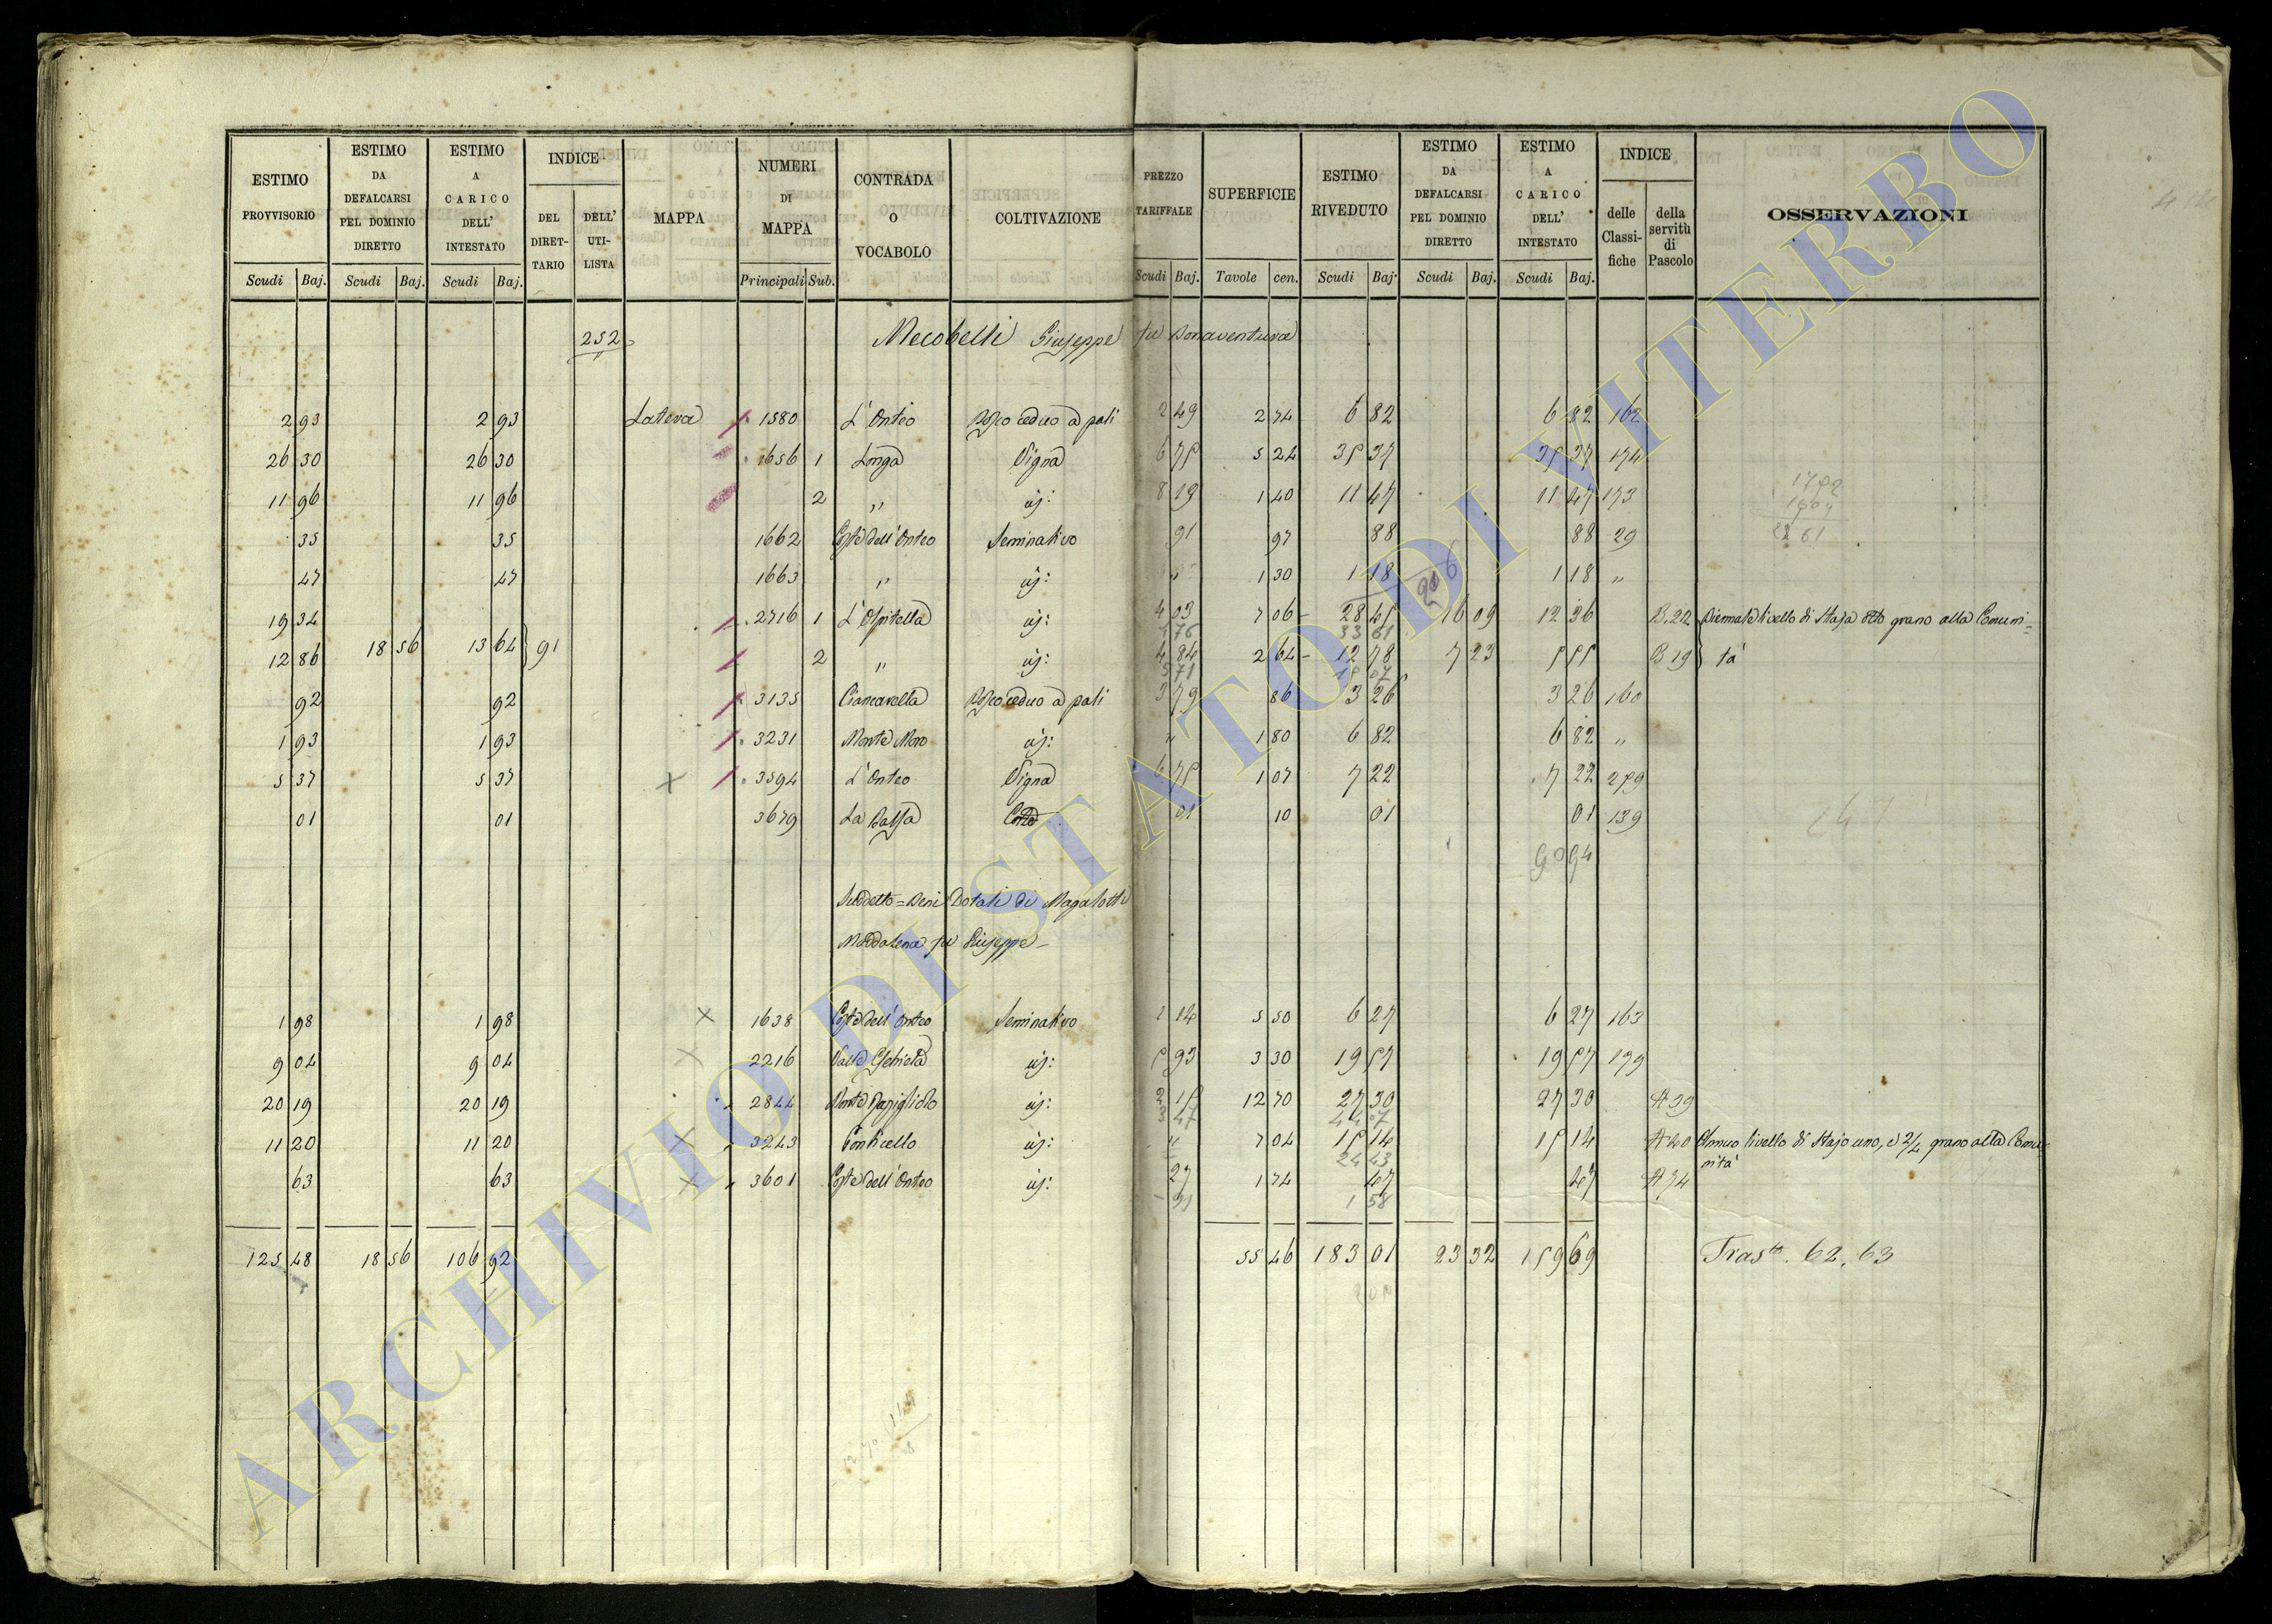 ESTIMO PROVVISORIO | ESTIMO DA DEFALCARSI PEL DOMINIO DIRETTO | ESTIMO A CARICO DELL' INTESTATO | INDICE DEL DIRETTARIO | DELL' UTILISTA | MAPPA | NUMERI DI MAPPA | CONTRADA O VOCABOLO | COLTIVAZIONE | PREZZO TARIFFALE | SUPERFICIE | ESTIMO RIVEDUTO | ESTIMO DA DEFALCARSI PEL DOMINIO DIRETTO | ESTIMO A CARICO DELL' INTESTATO | INDICE delle Classifiche | della servitù di Pascolo | OSSERVAZIONI
Scudi Baj. | Scudi Baj. | Scudi Baj. | Principali Sub. | Scudi Baj. | Tavole cen. | Scudi Baj. | Scudi Baj. | Scudi Baj.
252 Mecobelli Giuseppe fu Bonaventura
2 93 | 2 93 | Latera | 1580 | L'Onteo | Bosco ceduo a pali | 2 49 | 2 74 | 6 82 | 6 82 | 162
26 30 | 26 30 | 1656 1 | Longa | Vigna | 6 75 | 5 24 | 35 37 | 35 37 | 174
11 96 | 11 96 | 2 | " | id: | 8 19 | 1 40 | 11 47 | 11 47 | 173
35 | 35 | 1662 | Coste dell'Onteo | Seminativo | 91 | 97 | 88 | 88 | 29
47 | 47 | 1663 | " | id: | " | 1 30 | 1 18 | 1 18 | "
19 34 | 2716 1 | L'Ospitella | id: | 4 03 | 7 06 | 28 45 | 16 09 | 12 36 | B.22 | Biennale livello di Staja otto grano alla Comuni=
33 61
12 86 | 18 56 | 13 64 | 91 | 2 | " | id: | 4 84 | 2 64 | 12 78 | 7 23 | 5 55 | B 19 | tà
92 | 92 | 3135 | Ciancarella | Bosco ceduo a pali | 3 79 | 86 | 3 26 | 3 26 | 160
1 93 | 1 93 | 3231 | Monte Moro | id: | " | 1 80 | 6 82 | 6 82 | "
5 37 | 5 37 | 3594 | L'Onteo | Vigna | 6 75 | 1 07 | 7 22 | 7 22 | 279
01 | 01 | 3679 | La Balsa | 01 | 10 | 01 | 01 | 139
90 94
Suddetto = Beni Dotali di Magalotti
Maddalena fu Giuseppe
1 98 | 1 98 | 1638 | Coste dell'Onteo | Seminativo | 1 14 | 5 50 | 6 27 | 6 27 | 163
9 04 | 9 04 | 2216 | id: | 5 93 | 3 30 | 19 57 | 19 57 | 179
20 19 | 20 19 | 2844 | id: | 2 15 | 12 70 | 27 30 | 27 30 | A 39
3 47 | 44 07
11 20 | 11 20 | 3243 | Ponticello | id: | " | 7 04 | 15 14 | 15 14 | A 40 | Annuo livello di Stajo uno, e 2/4 grano alla Comu=
24 43 | nità
63 | 63 | 3601 | Coste dell'Onteo | id: | 27 | 1 74 | 47 | 47 | A 74
91 | 1 58
125 48 | 18 56 | 106 92 | 55 46 | 183 01 | 23 32 | 159 69 | Trasto. 62, 63
ARCHIVIO DI STATO DI VITERBO